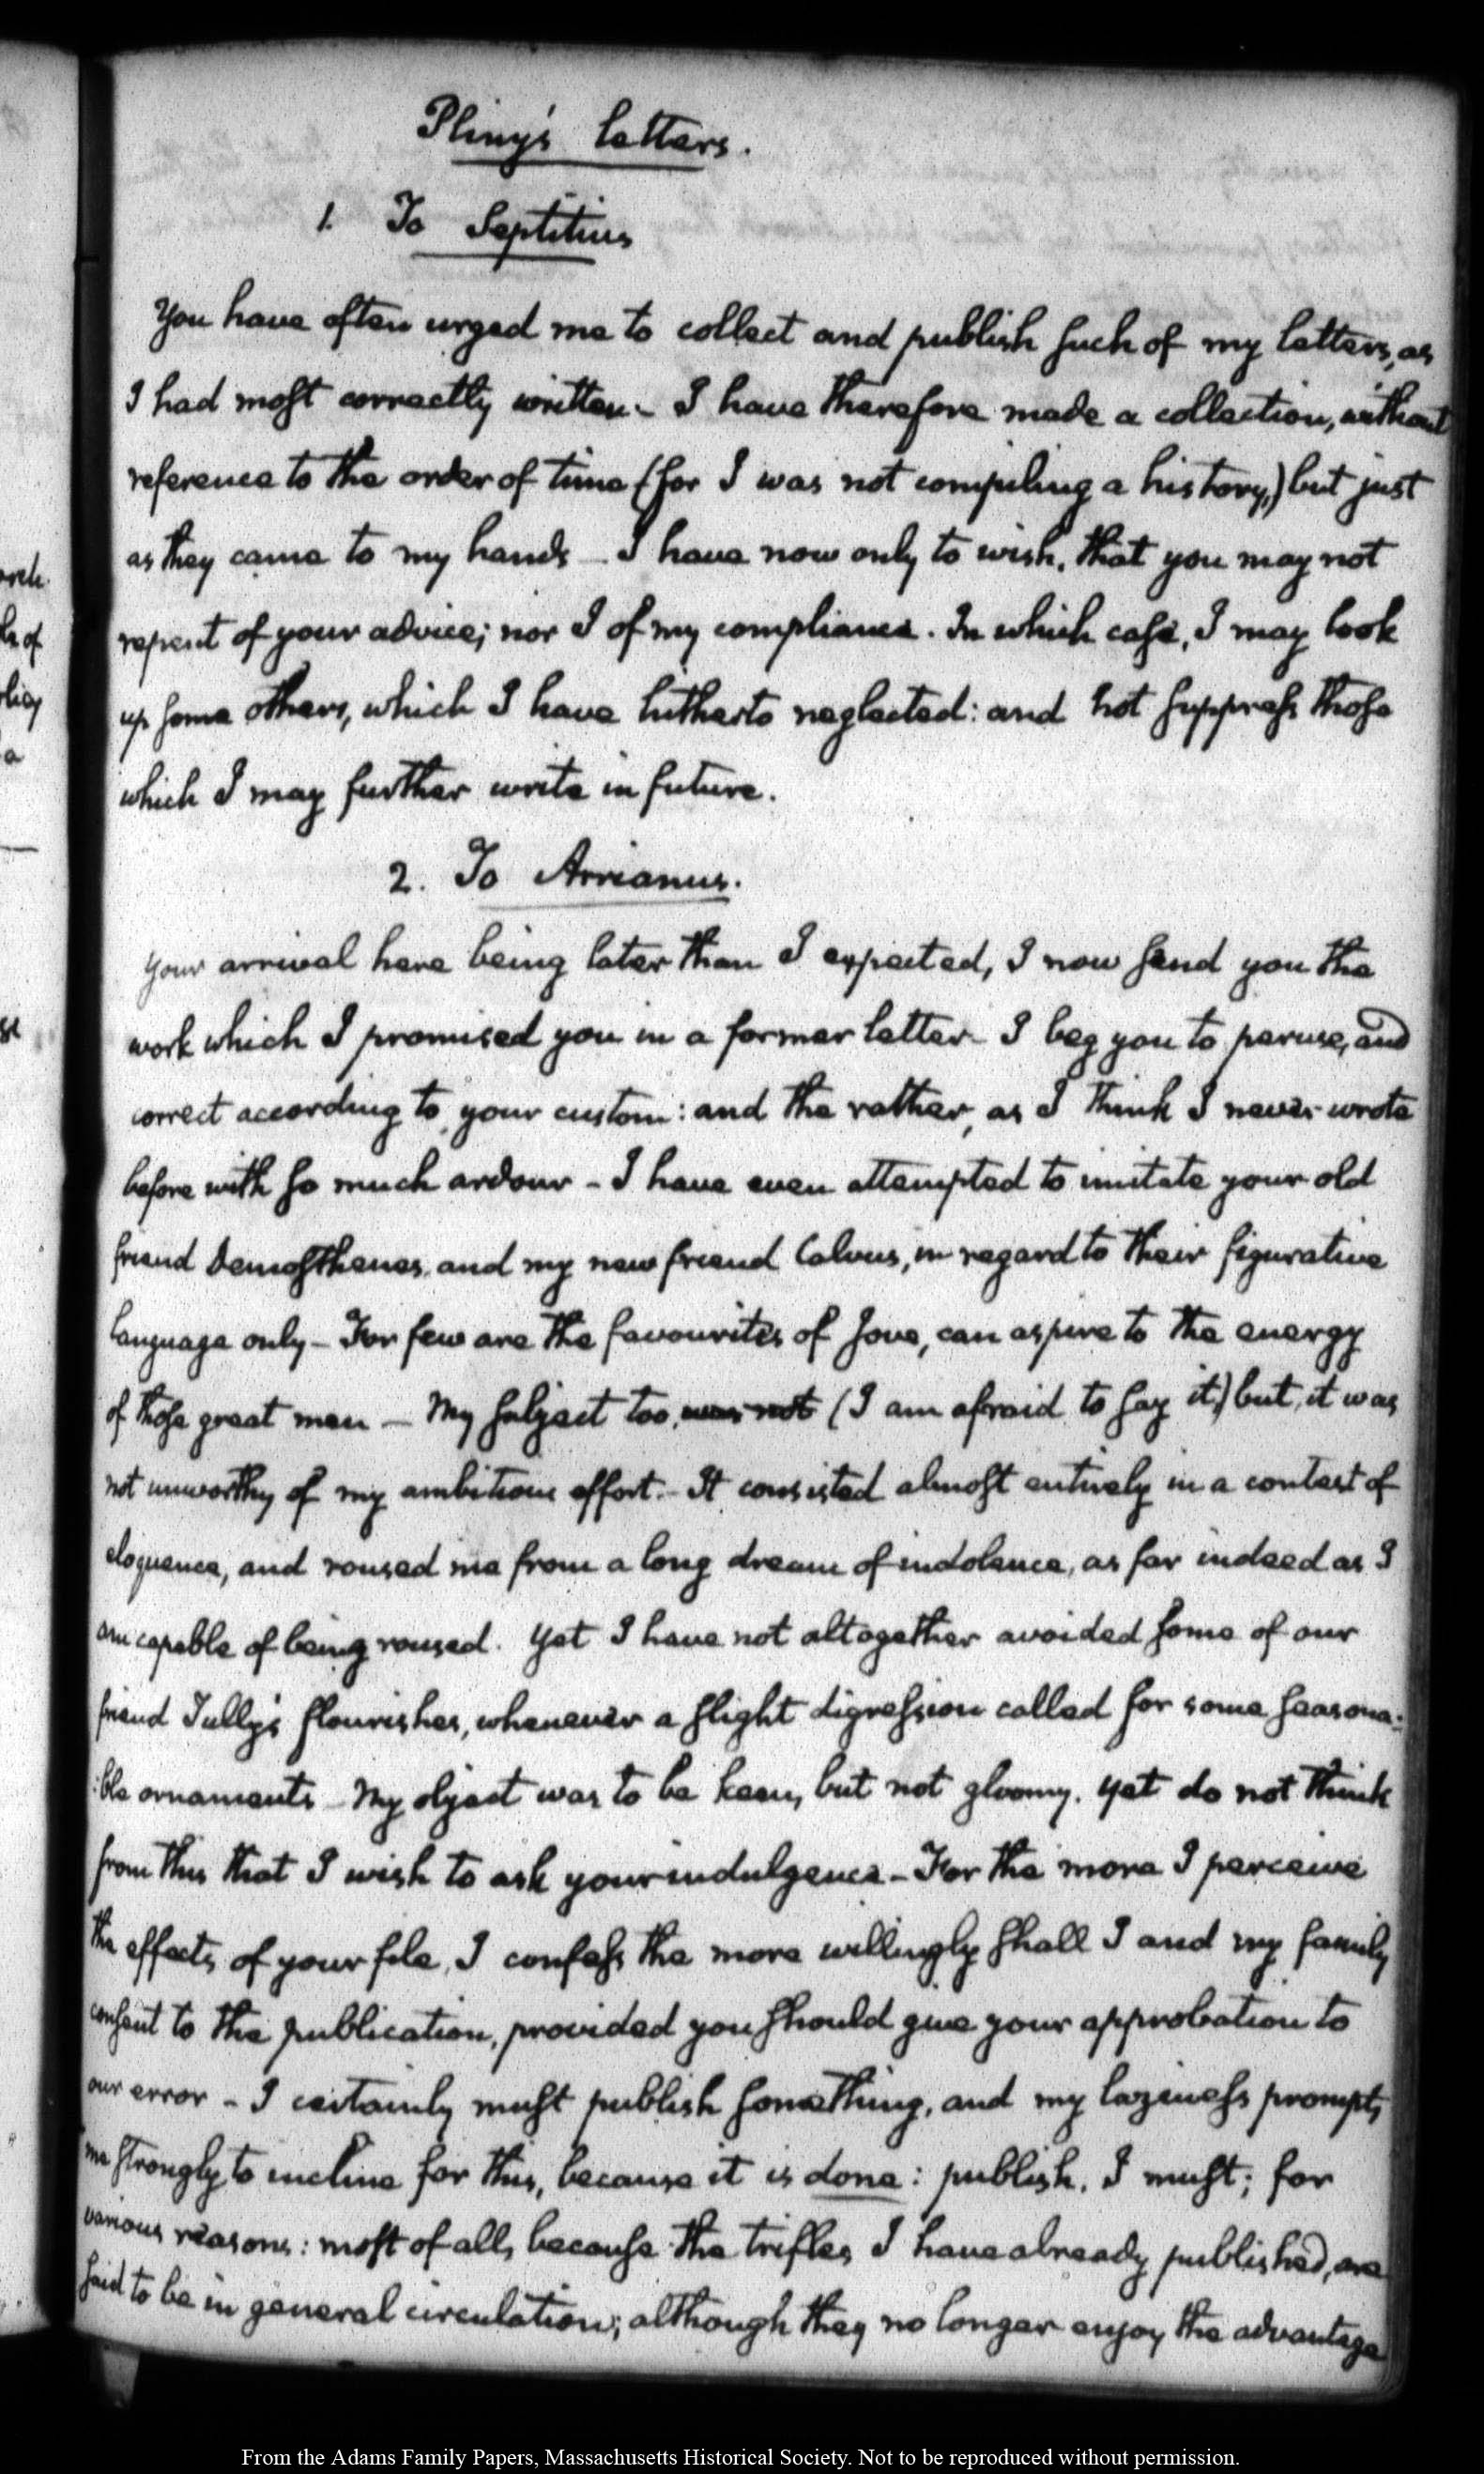 Pliny's letters.
1. To Septitius
You have often urged me to collect and publish such of my letters, as
I had most correctly written - I have therefore made a collection, without
reference to the order of time (for I was not compiling a history,) but just
as they came to my hands - I have now only to wish, that you may not
repent of your advice; nor I of my compliance. In which case, I may look
up some others, which I have hitherto neglected: and not suppress those
which I may further write in future.
2. To Arrianus.
Your arrival here being later than I expected, I now send you the
work which I promised you in a former letter - I beg you to peruse, and
correct according to your custom: and the rather, as I think I never wrote
before with so much ardour - I have even attempted to imitate your old
friend Demosthenes, and my new friend Calvus, in regard to their figurative
language only - For few are the favourites of Jove, can aspire to the energy
of those great men - My subject too, was not (I am afraid to say it,) but, it was
not unworthy of my ambitious effort. - It consisted almost entirely in a contest of
eloquence, and roused me from a long dream of indolence, as far indeed as I
am capable of being roused. Yet I have not altogether avoided some of our
friend Tully's flourishes, whenever a slight digression called for some seasona:
:ble ornaments - My object was to be keen, but not gloomy. Yet do not think
from this that I wish to ask your indulgence - For the more I perceive
the effects of your file, I confess the more willingly shall I and my family
consent to the publication, provided you should give your approbation to
our error - I certainly must publish something, and my laziness prompts
me strongly to incline for this, because it is done: publish, I must; for
various reasons: most of all, because the trifles I have already published, are
said to be in general circulation; although they no longer enjoy the advantage
From the Adams Family Papers, Massachusetts Historical Society. Not to be reproduced without permission.